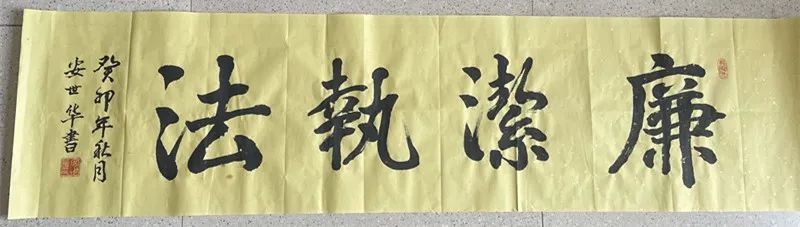 廉潔執法
癸卯年秋月
安世华書